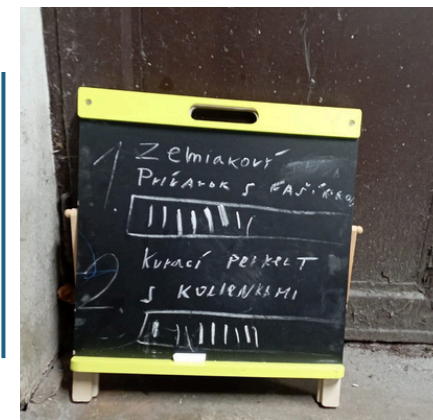 1. Zemiakový
Prívarok s FAŠÍRKOU
2. Kurací PERKELT
S KOLIENKAMI